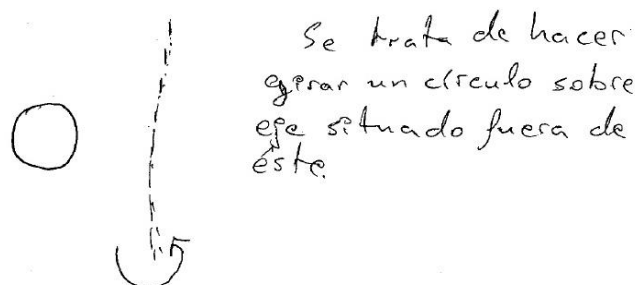 Se trata de hacer
girar un círculo sobre
eje situado fuera de
éste.